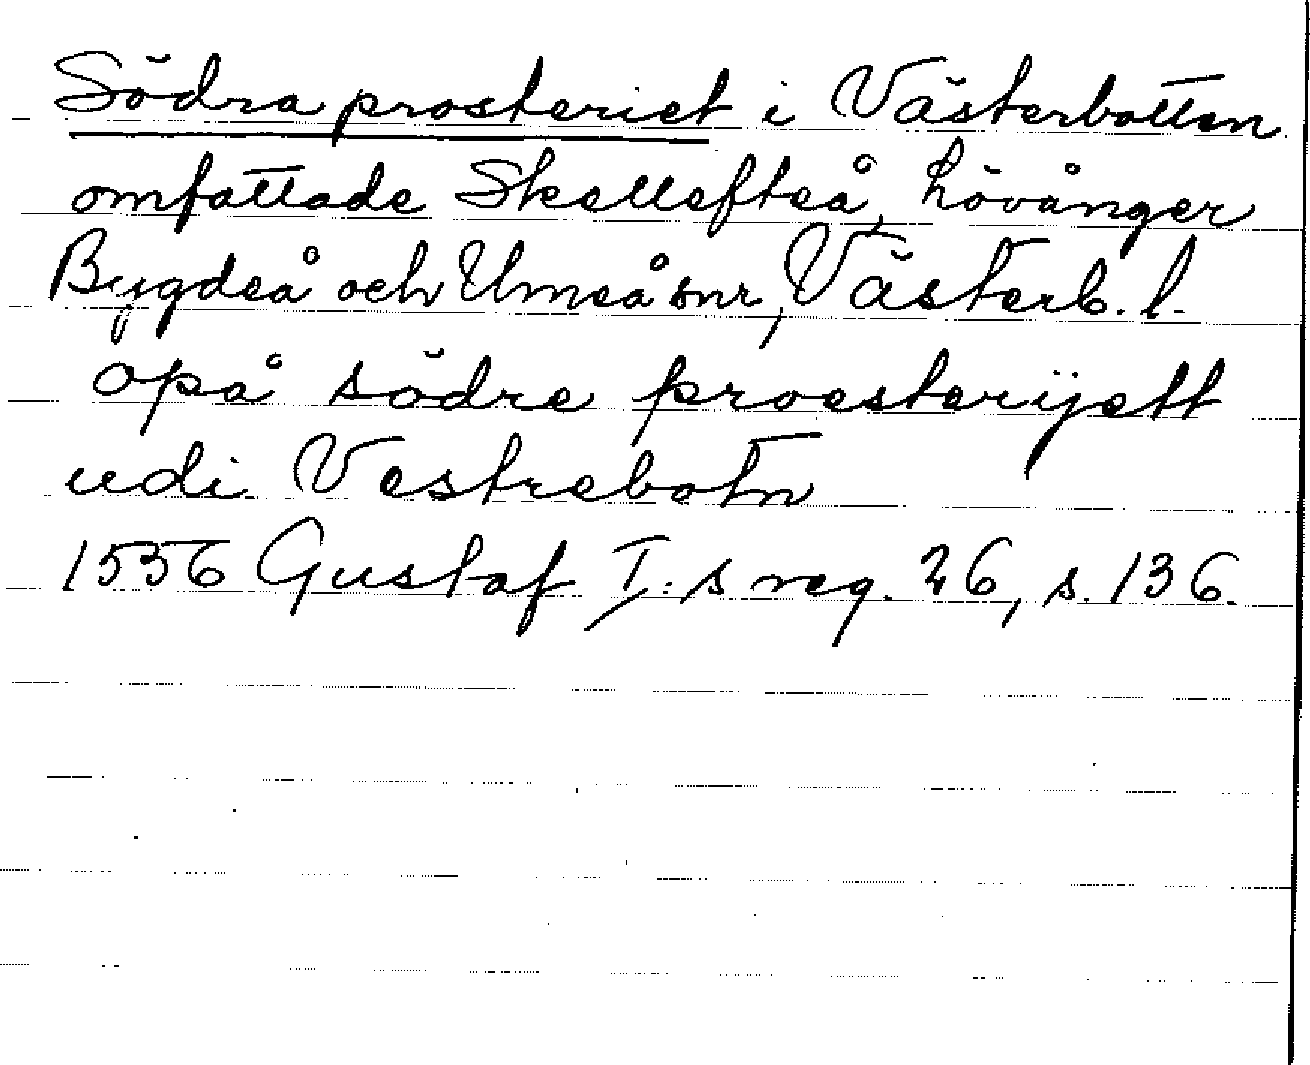 Södra prosteriet i Västerbotten
omfattade Skellefteå, Lövånger
Bygdeå och Umeå snr, Västerb. l.
opå södre proesterijett
udi Vestrebotn
1556 Gustaf I:s reg. 26, s. 136.